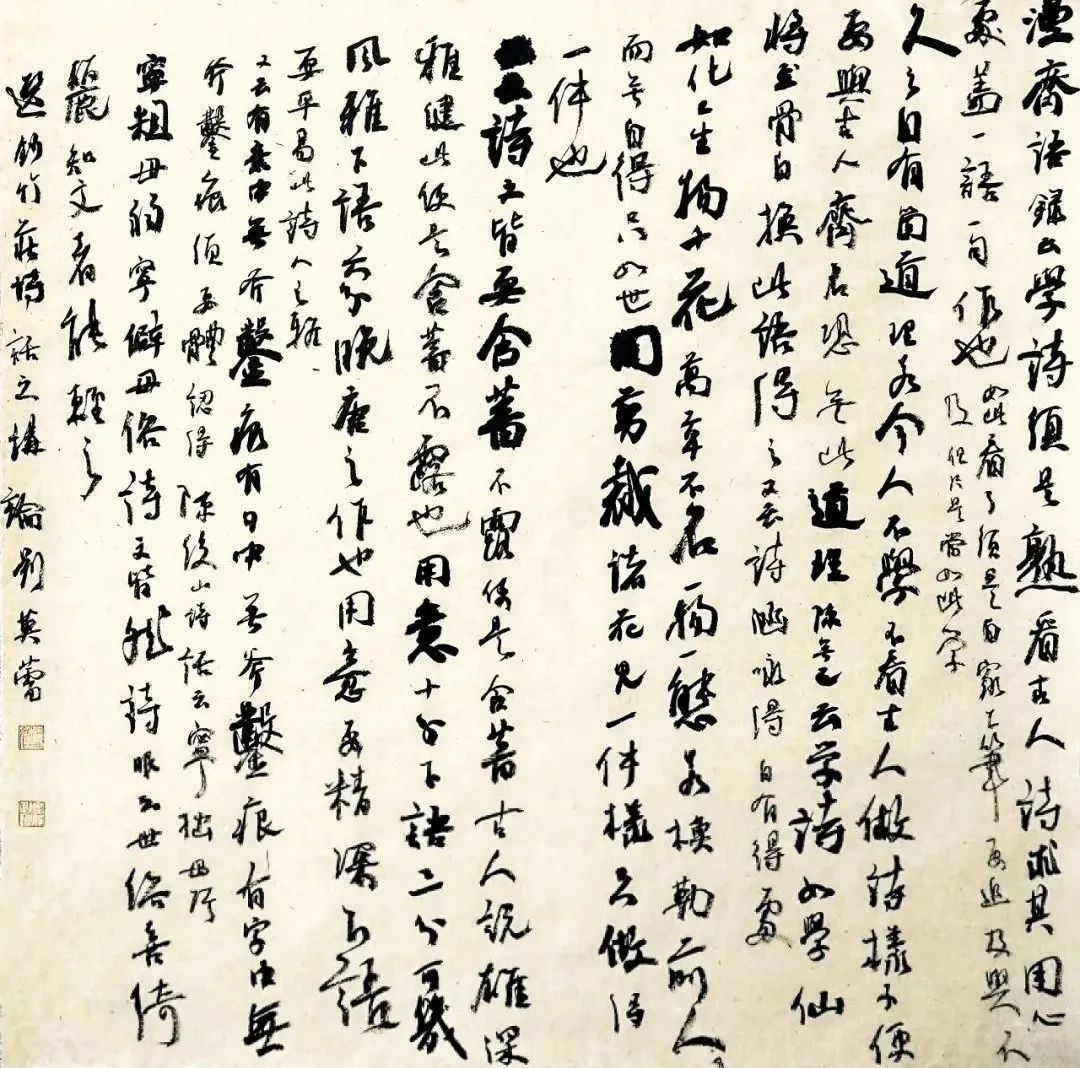 漫斋语录云学詩須是熟看古人詩求其用心
處盖一語一句作也如此看了須是自家下筆要追及與不
及但只是當如此學
久之自有箇道理若今人不學不看古人做詩樣子便
要與古人齊肩恐無此道理陈無己云学詩如學仙
時至骨自换此語得之又云詩涵咏得自有得處
如化工生物千花萬草不名一物一態若模勒前人
而無自得只如世間剪裁諸花見一件樣只做得
一件也
詩文皆要含蓄不露便是含蓄古人説雄深
雅健此便是含蓄不露也用意十分下語三分可幾
風雅下語六分晚唐之作也用意要精深下語
要平易此詩人之難
又云有意中無斧鑿痕有句中無斧鑿痕有字中無
斧鑿痕須要體認得陳後山詩話云寧拙毋巧
寧粗毋弱寧僻毋俗詩文皆然詩眼云世俗喜綺
麗知文者能輕之
選鈔竹莊詩話之講論劉英